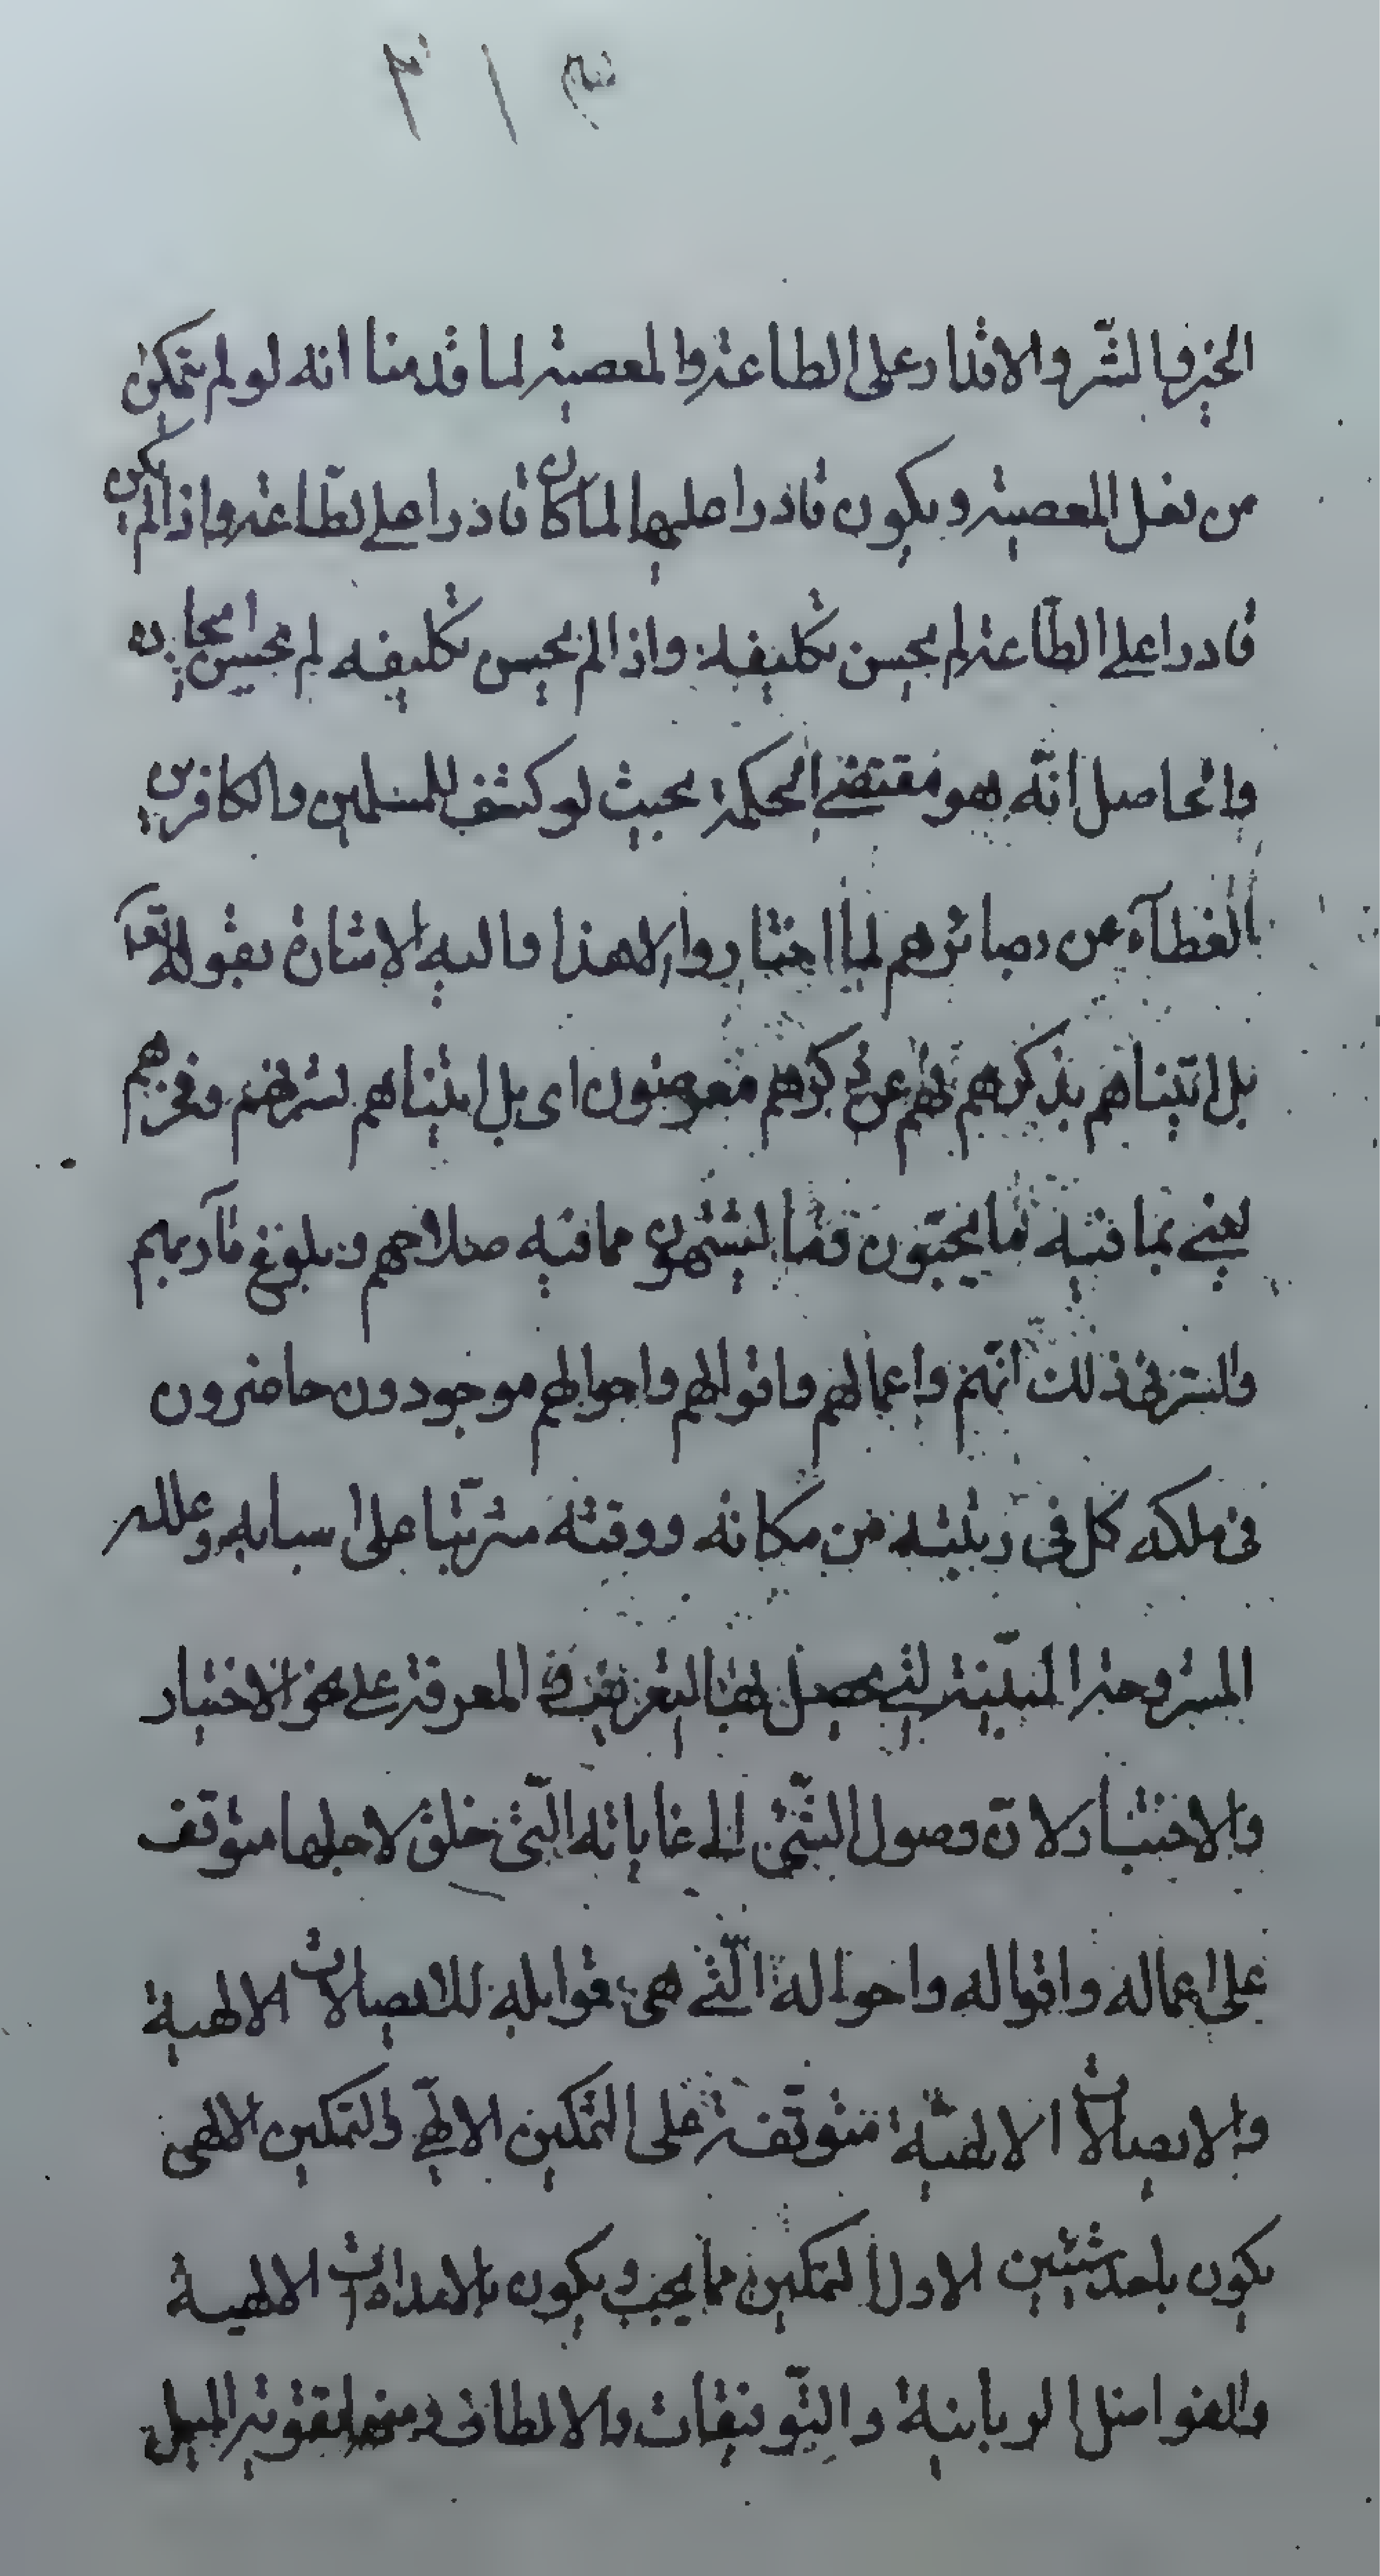 الخير والشر والاقدار على الطاعة والمعصية لما قدمنا انه لو لم يتمكن
من فعل المعصية ويكون قادرا عليها لما كان قادرا على الطّاعة واذا لم يكن
قادرا على الطّاعة لم يحسن تكليفه واذا لم يحسن تكليفه لم يحسن ايجاده
والحاصل انّه هو مقتضى الحكمة بحيث لو كشف للمسلمين والكافرين
الغطآء عن بصائرهم لما اختاروا الا هذا واليه الاشارة بقوله تعالى
بل اتيناهم بذكرهم فهم عن ذكرهم معرضون اى بل اتيناهم بشرفهم وفخرهم
يعنى بما فيه ما يحبّون وما يشتهون مما فيه صلاحهم وبلوغ مآربهم
والسر فى ذلك انّهم واعمالهم واقوالهم واحوالهم موجودون حاضرون
فى ملكه كل فى رتبته من مكانه ووقته مترتّبا على اسبابه وعلله
المشروحة المبيّنة التى يحصل بها التعريف والمعرفة على نحو الاختيار
والاختبار لانّ وصول الشّئ الى غاياته الّتى خلق لاجلها متوقف
على اعماله واقواله واحواله الّتى هى قوابله للافصالات الالهية
والافصالات الالهيّة متوقّفة على التمكين الالهىّ والتمكين الالهى
يكون باحد شيئين الاول التمكين مما يحب ويكون بالامدادات الالهية
والفواضل الربانية والتّوفيقات والالطاف ومنها تقوية الميل